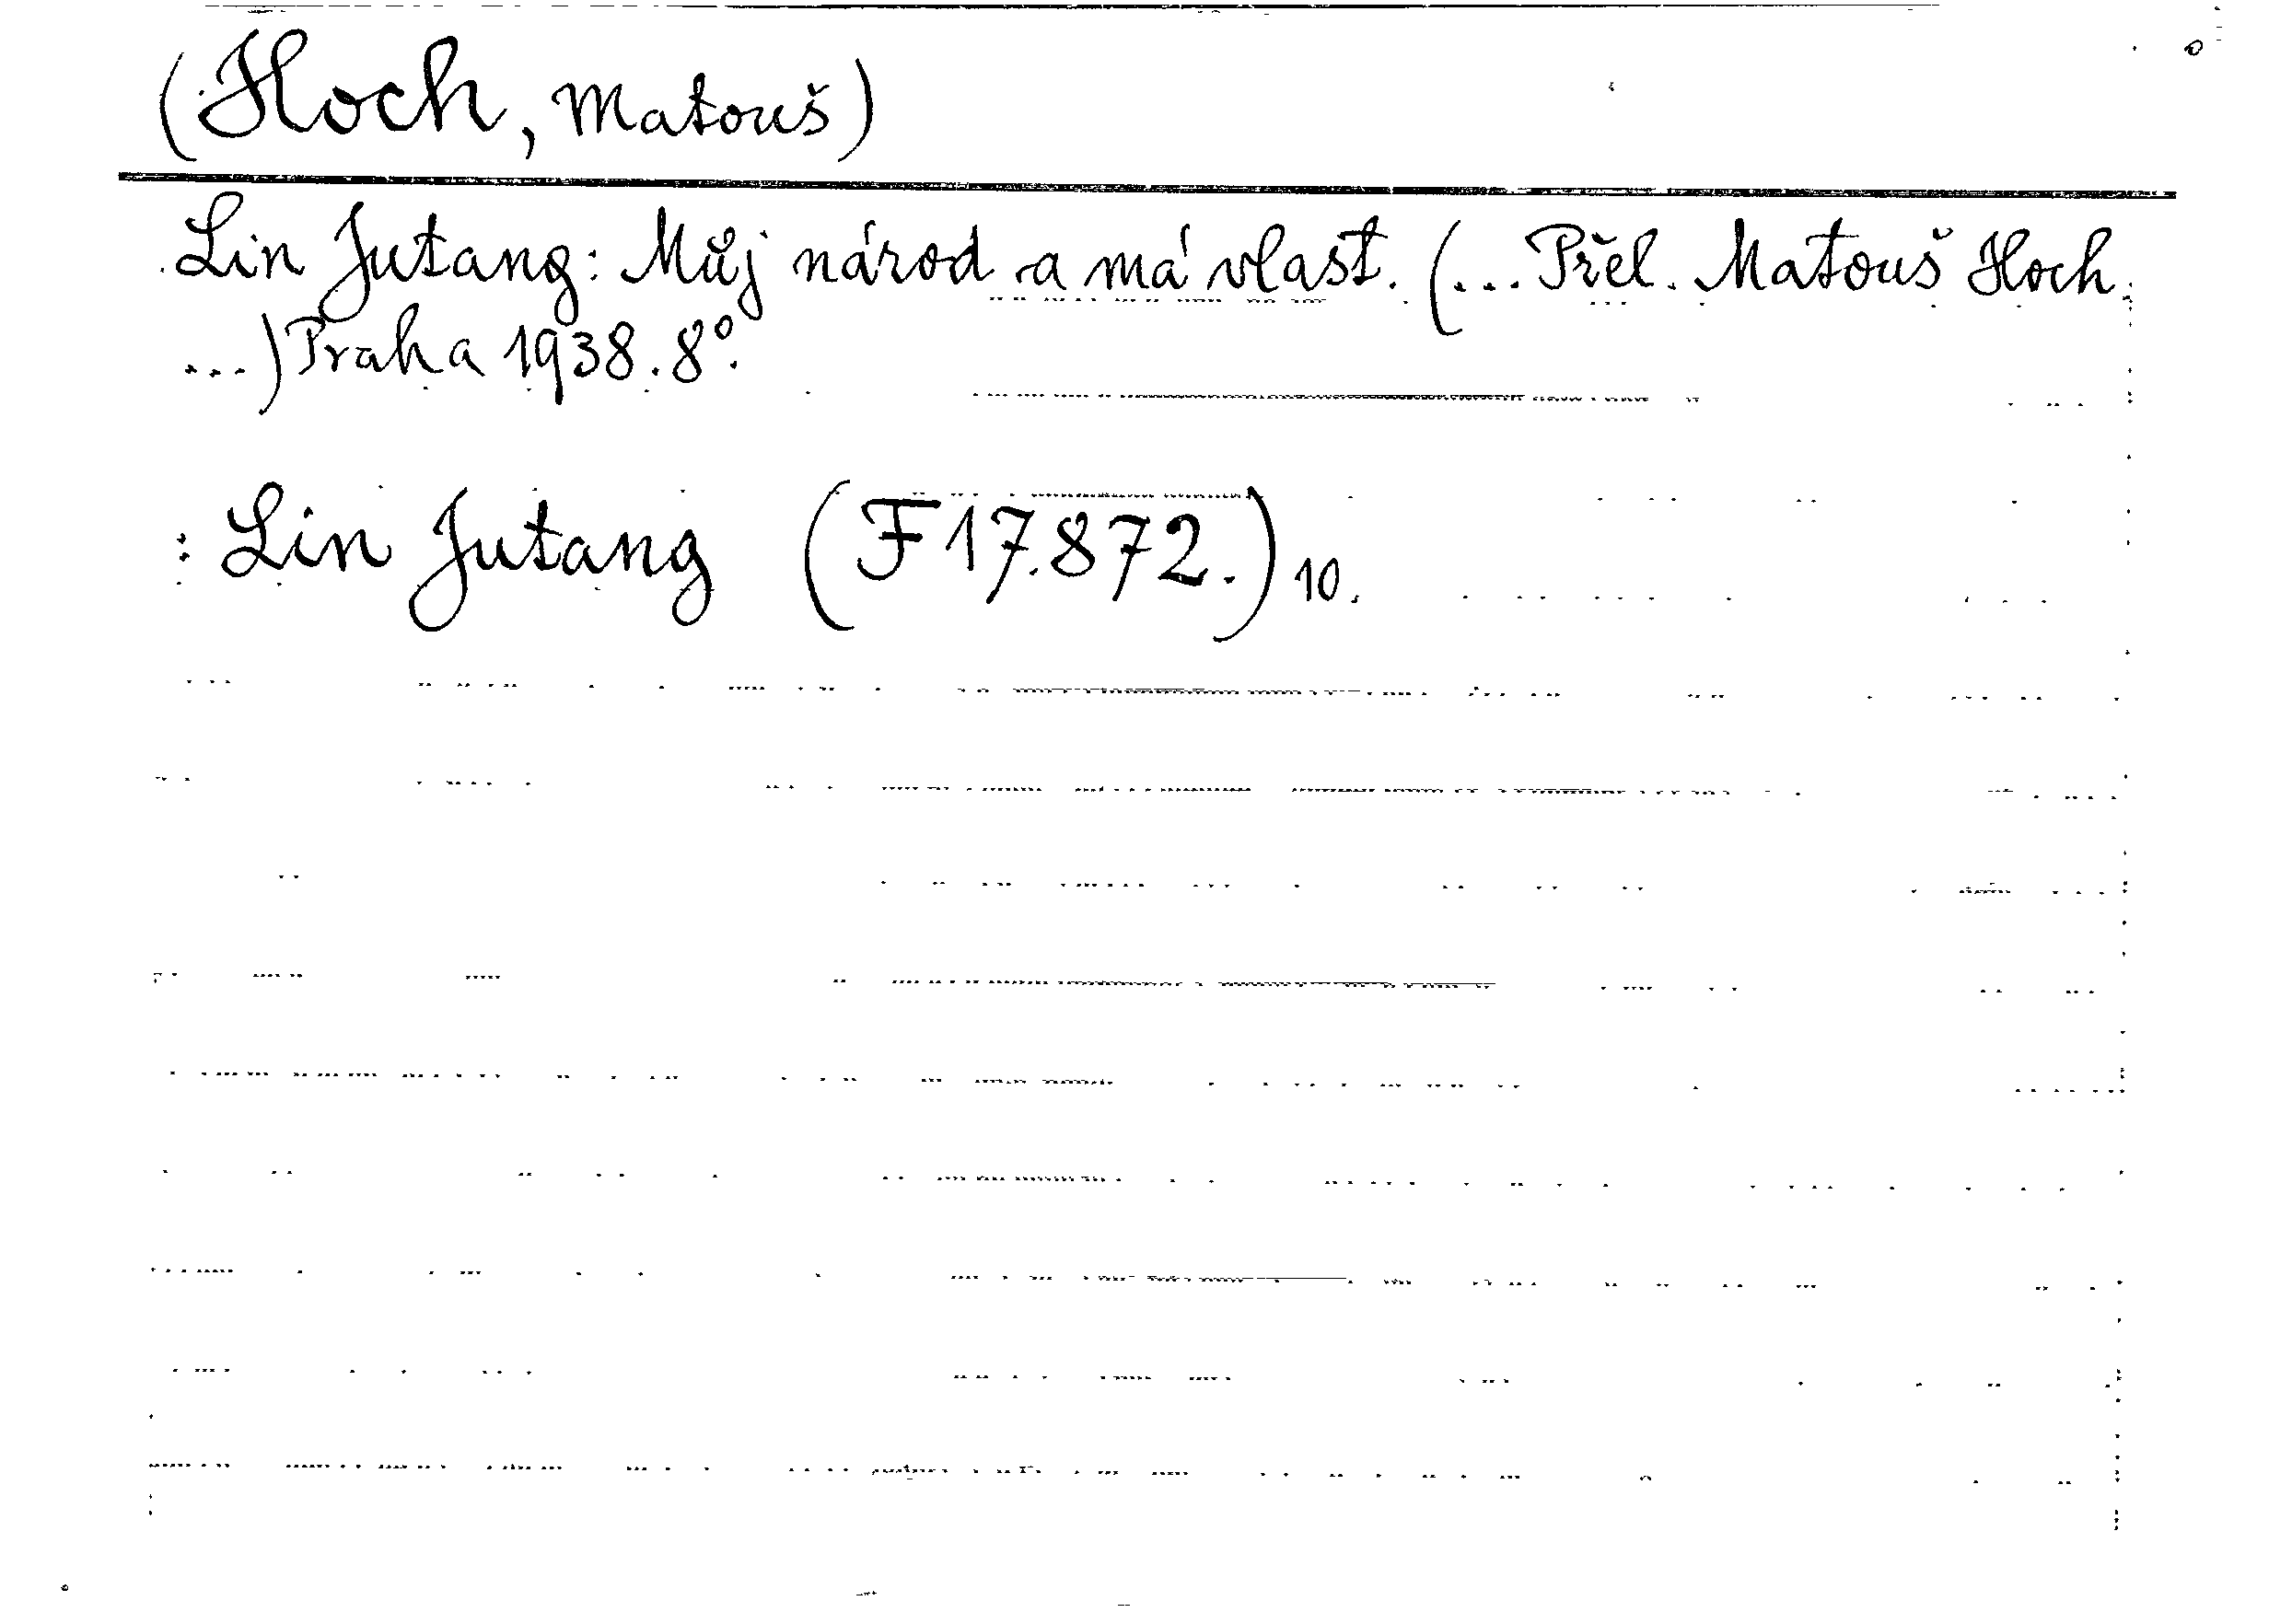 (Hoch, Matouš)
Lin Jutang: Můj národ a má vlast. (... Přel. Matouš Hoch.
...) Praha 1938. 8°.
: Lin Jutang (F 17.872.) 10.